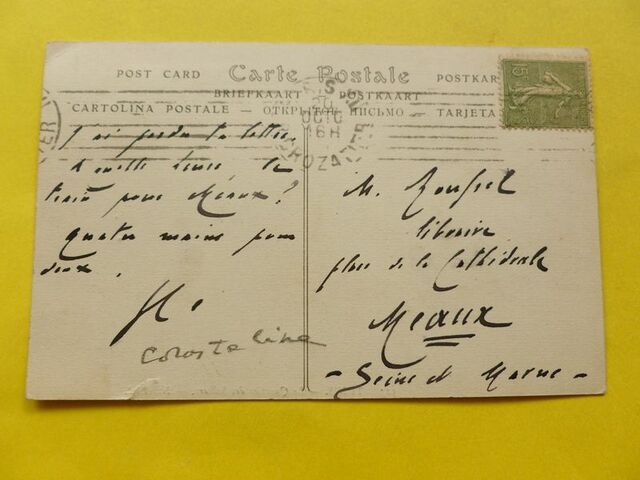 POST CARD Carte Postale POSTKAR
BRIEFKAART POSTKAART
CARTOLINA POSTALE - ОТКРЫТОЕ ПИСЬМО - TARJETA
15c
16H
J'ai perdu ta lettre.
A quelle heure le
train pour Meaux?
Quatre mains pour
deux.
M.
libraire
place de la Cathédrale
Meaux
- Seine et Marne -